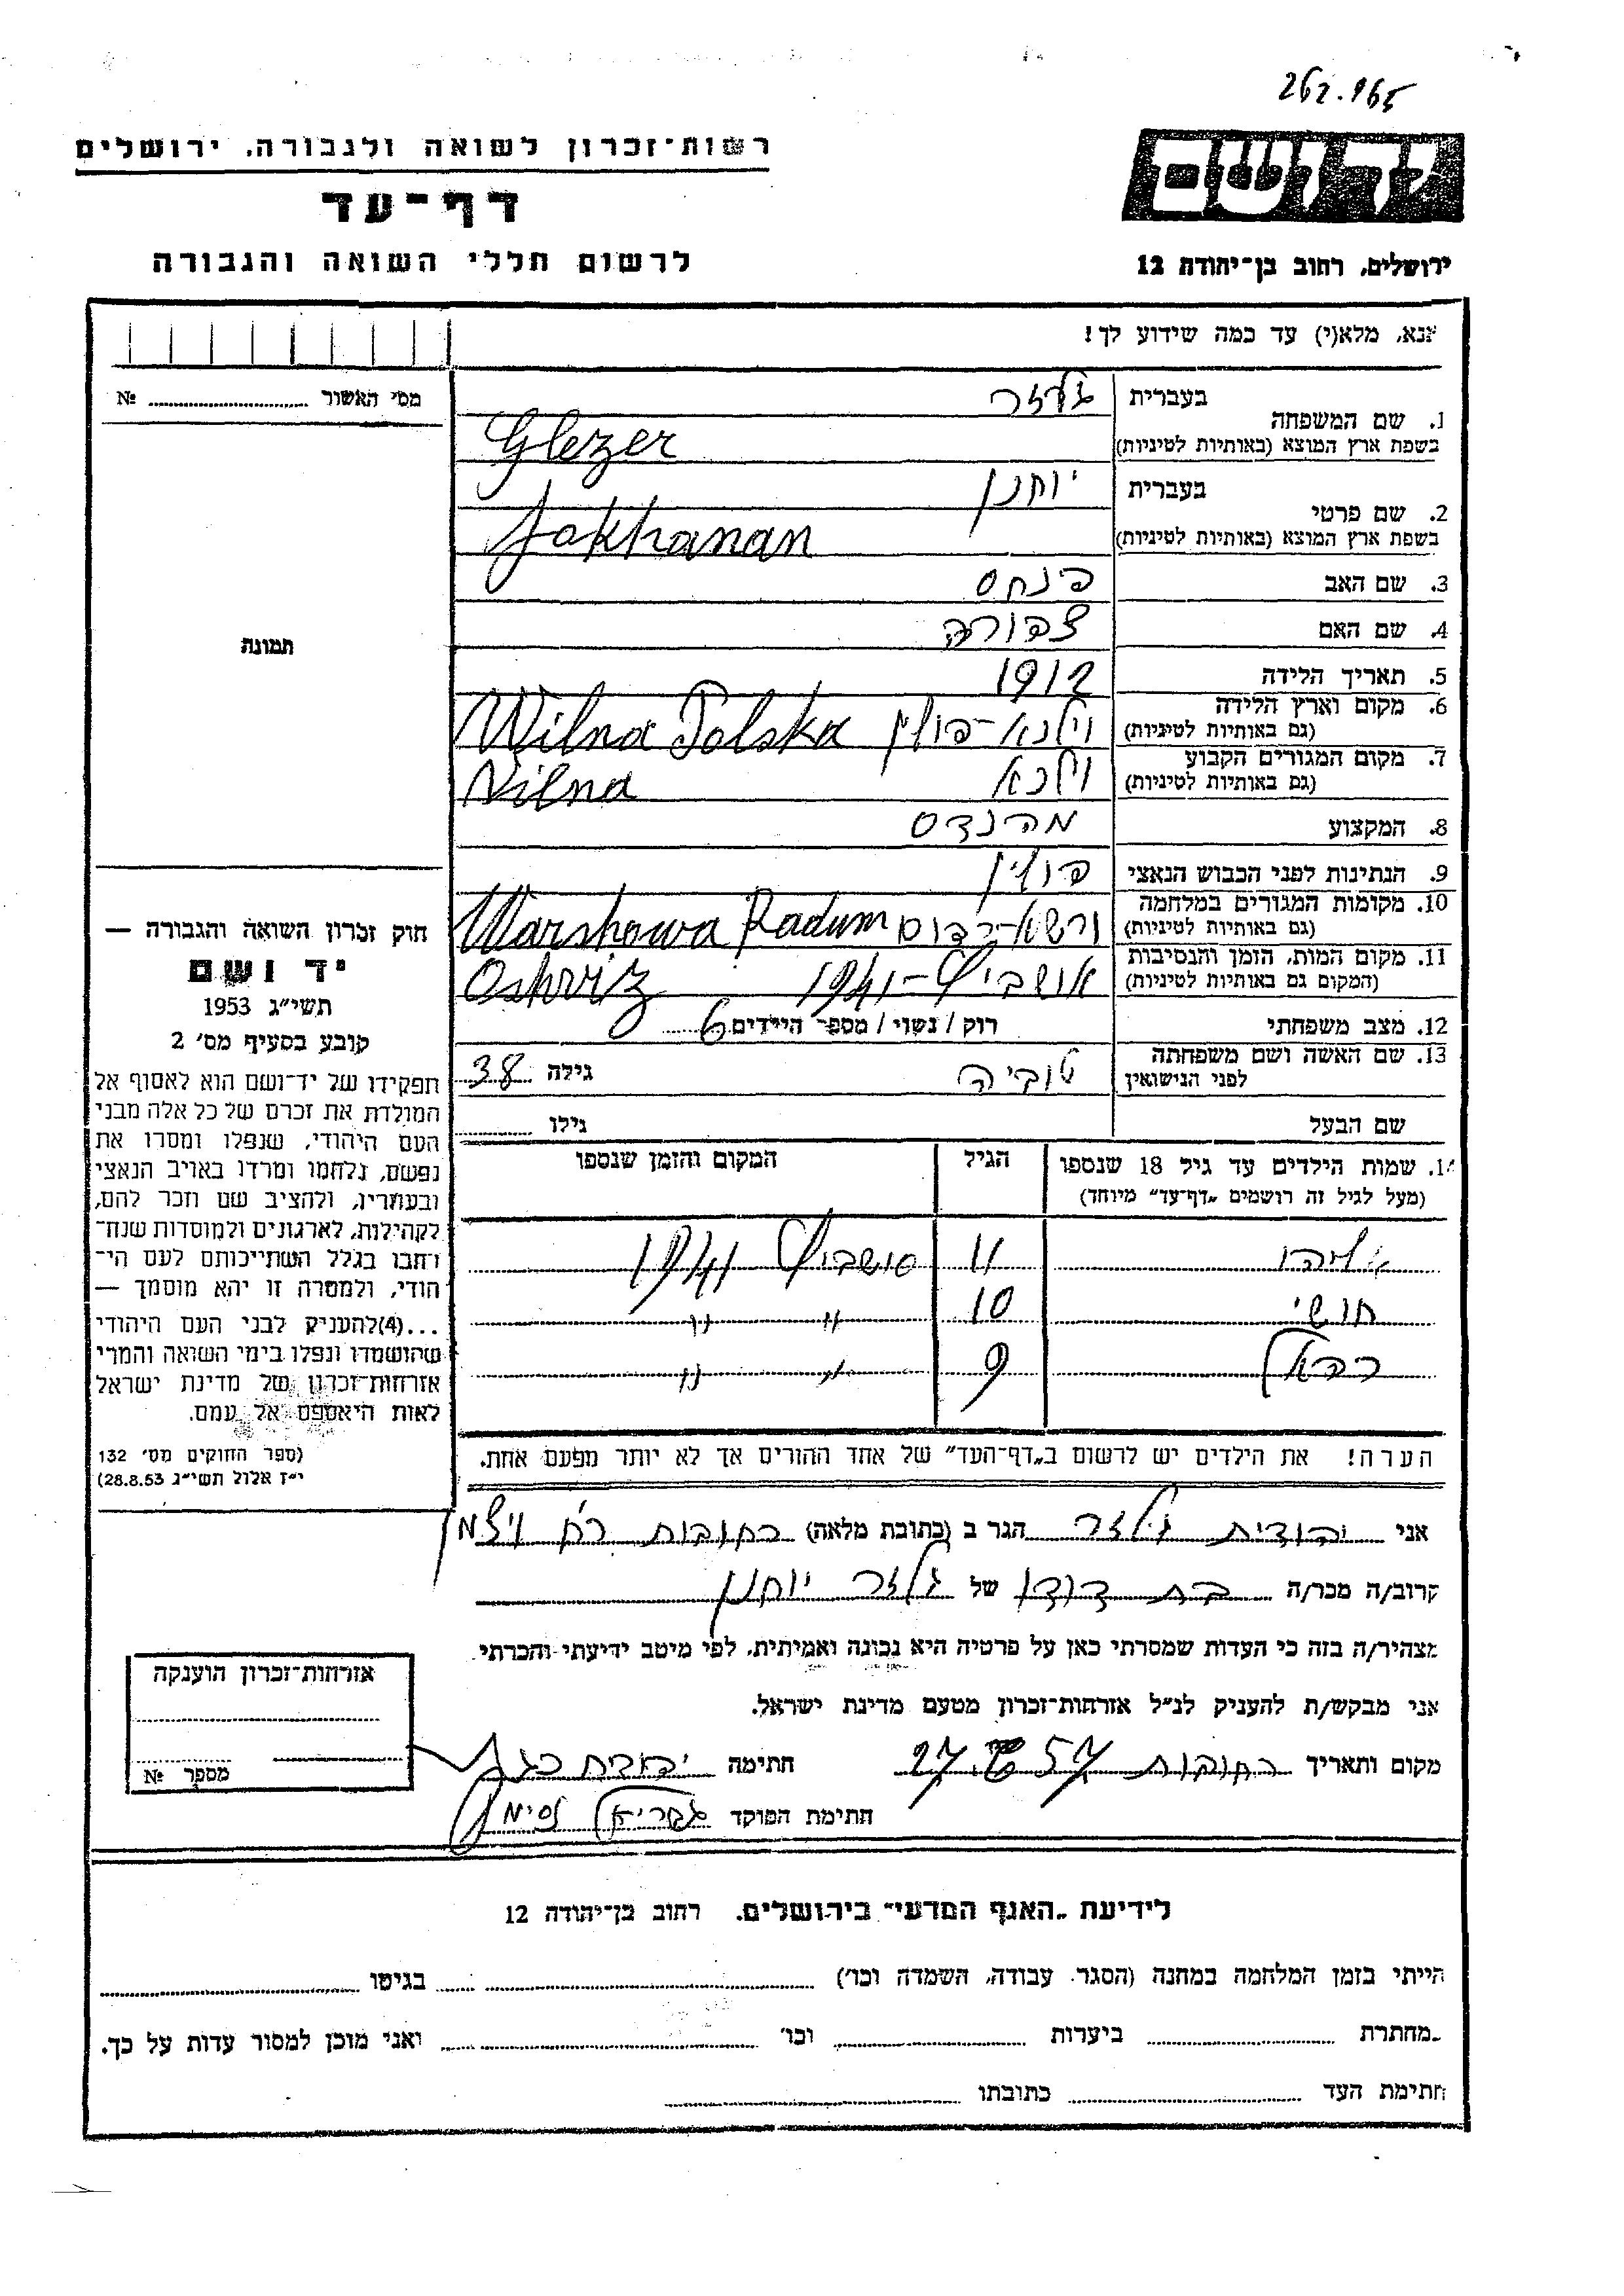 262.965
רשות־זכרון לשואה ולגבורה, ירושלים
דף־עד
לרשום חללי השואה והגבורה
ירושלים, רחוב בן־יהודה 12
אנא, מלא(י) עד כמה שידוע לך!
מס׳ האשור № 
1. שם המשפחה
בעברית גלזר
בשפת ארץ המוצא (באותיות לטיניות) Glezer
2. שם פרטי
בעברית יוחנן
בשפת ארץ המוצא (באותיות לטיניות) Jokhanan
3. שם האב פנחס
4. שם האם צפורה
5. תאריך הלידה 1912
6. מקום וארץ הלידה וילנא-פולין Wilna Polska
(גם באותיות לטיניות)
7. מקום המגורים הקבוע וילנא Vilna
(גם באותיות לטיניות)
8. המקצוע מהנדס
9. הנתינות לפני הכבוש הנאצי פולין
10. מקומות המגורים במלחמה ורשא-רדום Warshowa Radum
(גם באותיות לטיניות)
11. מקום המות, הזמן והנסיבות אושביץ-1941 Oshviz
(המקום גם באותיות לטיניות)
12. מצב משפחתי רוק / נשוי / מספר הילדים 6
13. שם האשה ושם משפחתה טוביה גילה 38
לפני הנישואין
שם הבעל גילו
14. שמות הילדים עד גיל 18 שנספו הגיל המקום והזמן שנספו
(מעל לגיל זה רושמים „דף־עד״ מיוחד)
אליהו 11 אושביץ 1941
חושי 10 〃 〃
רפאל 9 〃 〃
הערה! את הילדים יש לרשום ב„דף־העד״ של אחד ההורים אך לא יותר מפעם אחת.
תמונה
חוק זכרון השואה והגבורה —
יד ושם
תשי״ג 1953
קובע בסעיף מס׳ 2
תפקידו של יד־ושם הוא לאסוף אל
המולדת את זכרם של כל אלה מבני
העם היהודי, שנפלו ומסרו את
נפשם, נלחמו ומרדו באויב הנאצי
ובעוזריו, ולהציב שם וזכר להם,
לקהילות, לארגונים ולמוסדות שנח־
רחבו בגלל השתייכותם לעם הי־
הודי, ולמטרה זו יהא מוסמך —
...(4)להעניק לבני העם היהודי
שהושמדו ונפלו בימי השואה והמרי
אזרחות־זכרון של מדינת ישראל
לאות היאספם אל עמם.
(ספר החוקים מס׳ 132
י״ז אלול תשי״ג 28.8.53)
אני יהודית גלזר הגר ב (כתובת מלאה) רחובות רח ויצמן
קרוב/ה מכר/ה בת דודו של גלזר יוחנן
מצהיר/ה בזה כי העדות שמסרתי כאן על פרטיה היא נכונה ואמיתית, לפי מיטב ידיעתי והכרתי.
אני מבקש/ת להעניק לנ״ל אזרחות־זכרון מטעם מדינת ישראל.
מקום ותאריך רחובות 57 27 חתימה יהודית
חתימת הפוקד גבריאל
אזרחות־זכרון הוענקה
מספר №
לידיעת „האגף המדעי״ בירושלים, רחוב בן־יהודה 12
הייתי בזמן המלחמה במחנה (הסגר, עבודה, השמדה וכו׳) בגיטו
במחתרת ביערות וכו׳ ואני מוכן למסור עדות על כך.
חתימת העד כתובתו